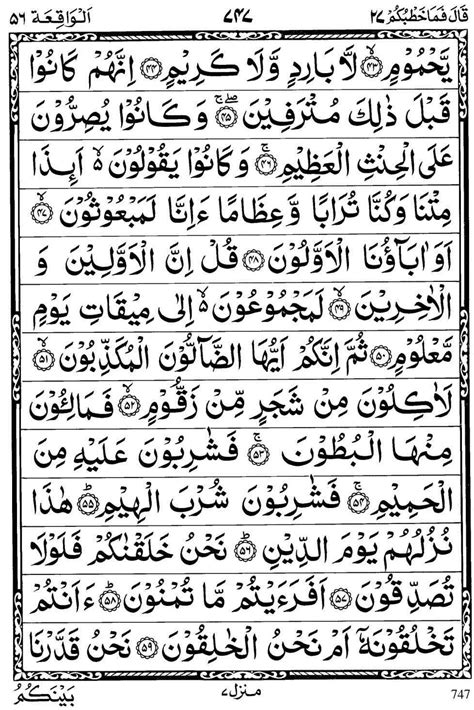 قَالَ فَمَا خَطْبُكُمْ ٢٧ ٧٤٧ اَلْوَاقِعَة ٥٦
يَّحْمُوْمٍ ﴿٤٣﴾ لَّا بَارِدٍ وَّلَا كَرِيْمٍ ﴿٤٤﴾ اِنَّهُمْ كَانُوْا
قَبْلَ ذٰلِكَ مُتْرَفِيْنَ ﴿٤٥﴾ وَكَانُوْا يُصِرُّوْنَ
عَلَى الْحِنْثِ الْعَظِيْمِ ﴿٤٦﴾ وَكَانُوْا يَقُوْلُوْنَ اَىِٕذَا
مِتْنَا وَكُنَّا تُرَابًا وَّعِظَامًا ءَاِنَّا لَمَبْعُوْثُوْنَ ﴿٤٧﴾
اَوَاٰبَآؤُنَا الْاَوَّلُوْنَ ﴿٤٨﴾ قُلْ اِنَّ الْاَوَّلِيْنَ وَ
الْاٰخِرِيْنَ ﴿٤٩﴾ لَمَجْمُوْعُوْنَ اِلٰى مِيْقَاتِ يَوْمٍ
مَّعْلُوْمٍ ﴿٥٠﴾ ثُمَّ اِنَّكُمْ اَيُّهَا الضَّآلُّوْنَ الْمُكَذِّبُوْنَ ﴿٥١﴾
لَاٰكِلُوْنَ مِنْ شَجَرٍ مِّنْ زَقُّوْمٍ ﴿٥٢﴾ فَمَالِـُٔوْنَ
مِنْهَا الْبُطُوْنَ ﴿٥٣﴾ فَشٰرِبُوْنَ عَلَيْهِ مِنَ
الْحَمِيْمِ ﴿٥٤﴾ فَشٰرِبُوْنَ شُرْبَ الْهِيْمِ ﴿٥٥﴾ هٰذَا
نُزُلُهُمْ يَوْمَ الدِّيْنِ ﴿٥٦﴾ نَحْنُ خَلَقْنٰكُمْ فَلَوْلَا
تُصَدِّقُوْنَ ﴿٥٧﴾ اَفَرَءَيْتُمْ مَّا تُمْنُوْنَ ﴿٥٨﴾ ءَاَنْتُمْ
تَخْلُقُوْنَهٗٓ اَمْ نَحْنُ الْخٰلِقُوْنَ ﴿٥٩﴾ نَحْنُ قَدَّرْنَا
بَيْنَكُمُ منزل ٧ 747